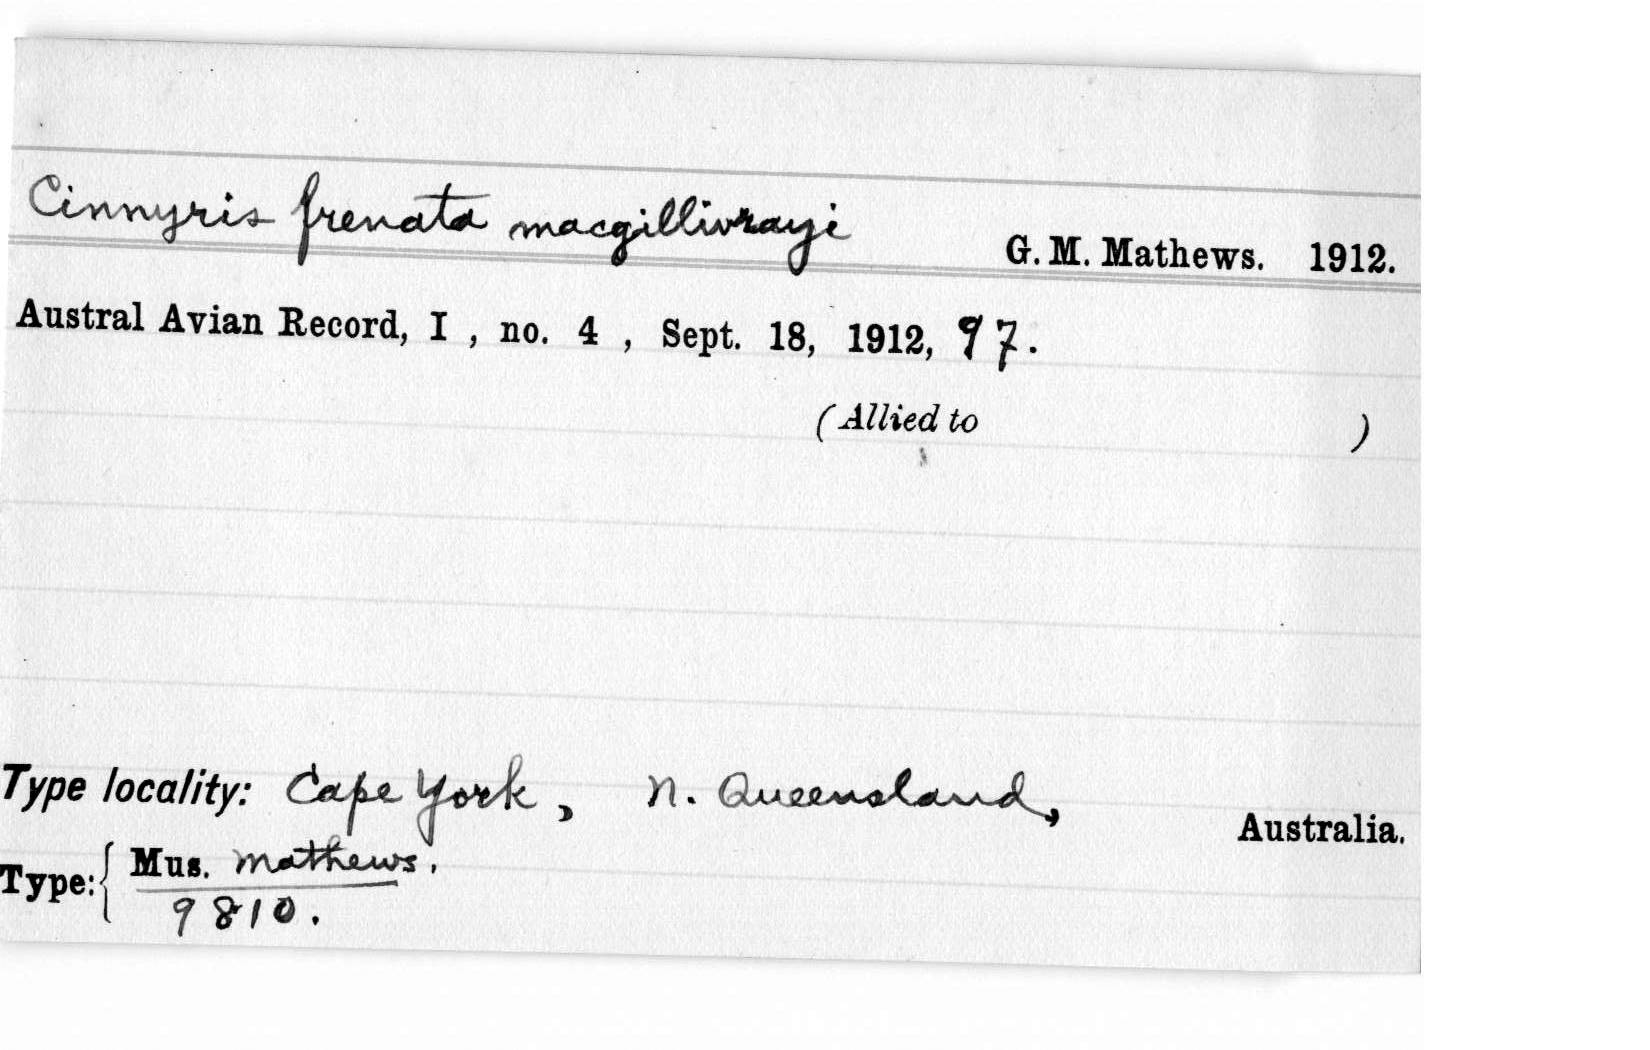 Cinnyris frenata macgillivrayi G. M. Mathews. 1912.
Austral Avian Record, I , no. 4 , Sept. 18, 1912, 97.
(Allied to )
Type locality: Cape York, N. Queensland, Australia.
Type: { Mus. Mathews.
9810.